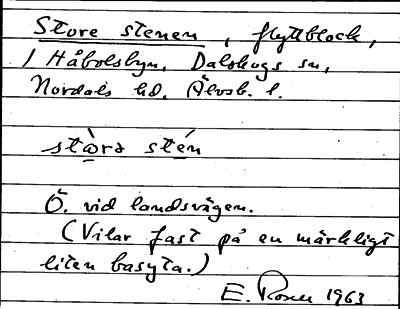 Store stenen, flyttblock,
i Håbolsbyn, Dalskogs sn,
Nordals hd. Älvsb. l.
stòrə stén
Ö. vid landsvägen.
(Vilar fast på en märkligt
liten basyta.)
E. 1963